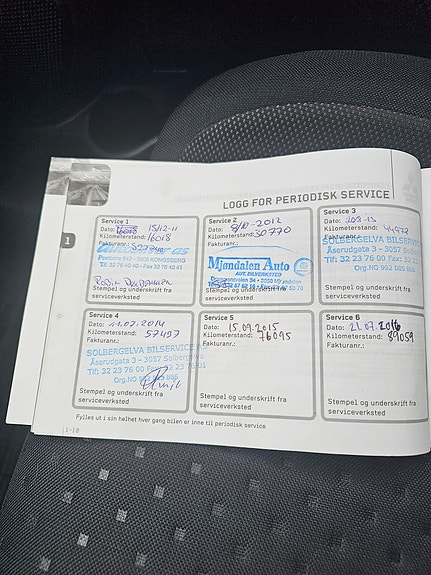 LOGG FOR PERIODISK SERVICE
1
Service 1
Dato: 15/12-11
Kilometerstand: 16018
Fakturanr.:
Postboks 542 - 3605 KONGSBERG
Tlf. 32 76 40 40 - Fax 32 76 40 41
Stempel og underskrift fra
serviceverksted
Service 2
Dato: 8/10-2012
Kilometerstand: 30770
Fakturanr.:
Mjøndalen Auto
AUT. BILVERKSTED
Stempel og underskrift fra
serviceverksted
Service 3
Dato:
Kilometerstand: 44972
Fakturanr.:
SOLBERGELVA BILSERVICE
Åserudgata 3 - 3057 Solb
Tlf: 32 23 76 00 Fax: 32
Org.NO 992 085 886
Stempel og underskrift fra
serviceverksted
Service 4
Dato: 11.07.2014
Kilometerstand: 57497
Fakturanr.:
SOLBERGELVA BILSERVICE
Åserudgata 3 - 3057 Solbergelva
Tlf: 32 23 76 00 Fax: 32 23 76 01
Org.NO 992 085 886
Stempel og underskrift fra
serviceverksted
Service 5
Dato: 15.09.2015
Kilometerstand: 76095
Fakturanr.:
Stempel og underskrift fra
serviceverksted
Service 6
Dato: 21.07.2016
Kilometerstand: 89059
Fakturanr.:
Stempel og underskrift fra
serviceverksted
Fylles ut i sin helhet hver gang bilen er inne til periodisk service
1-18